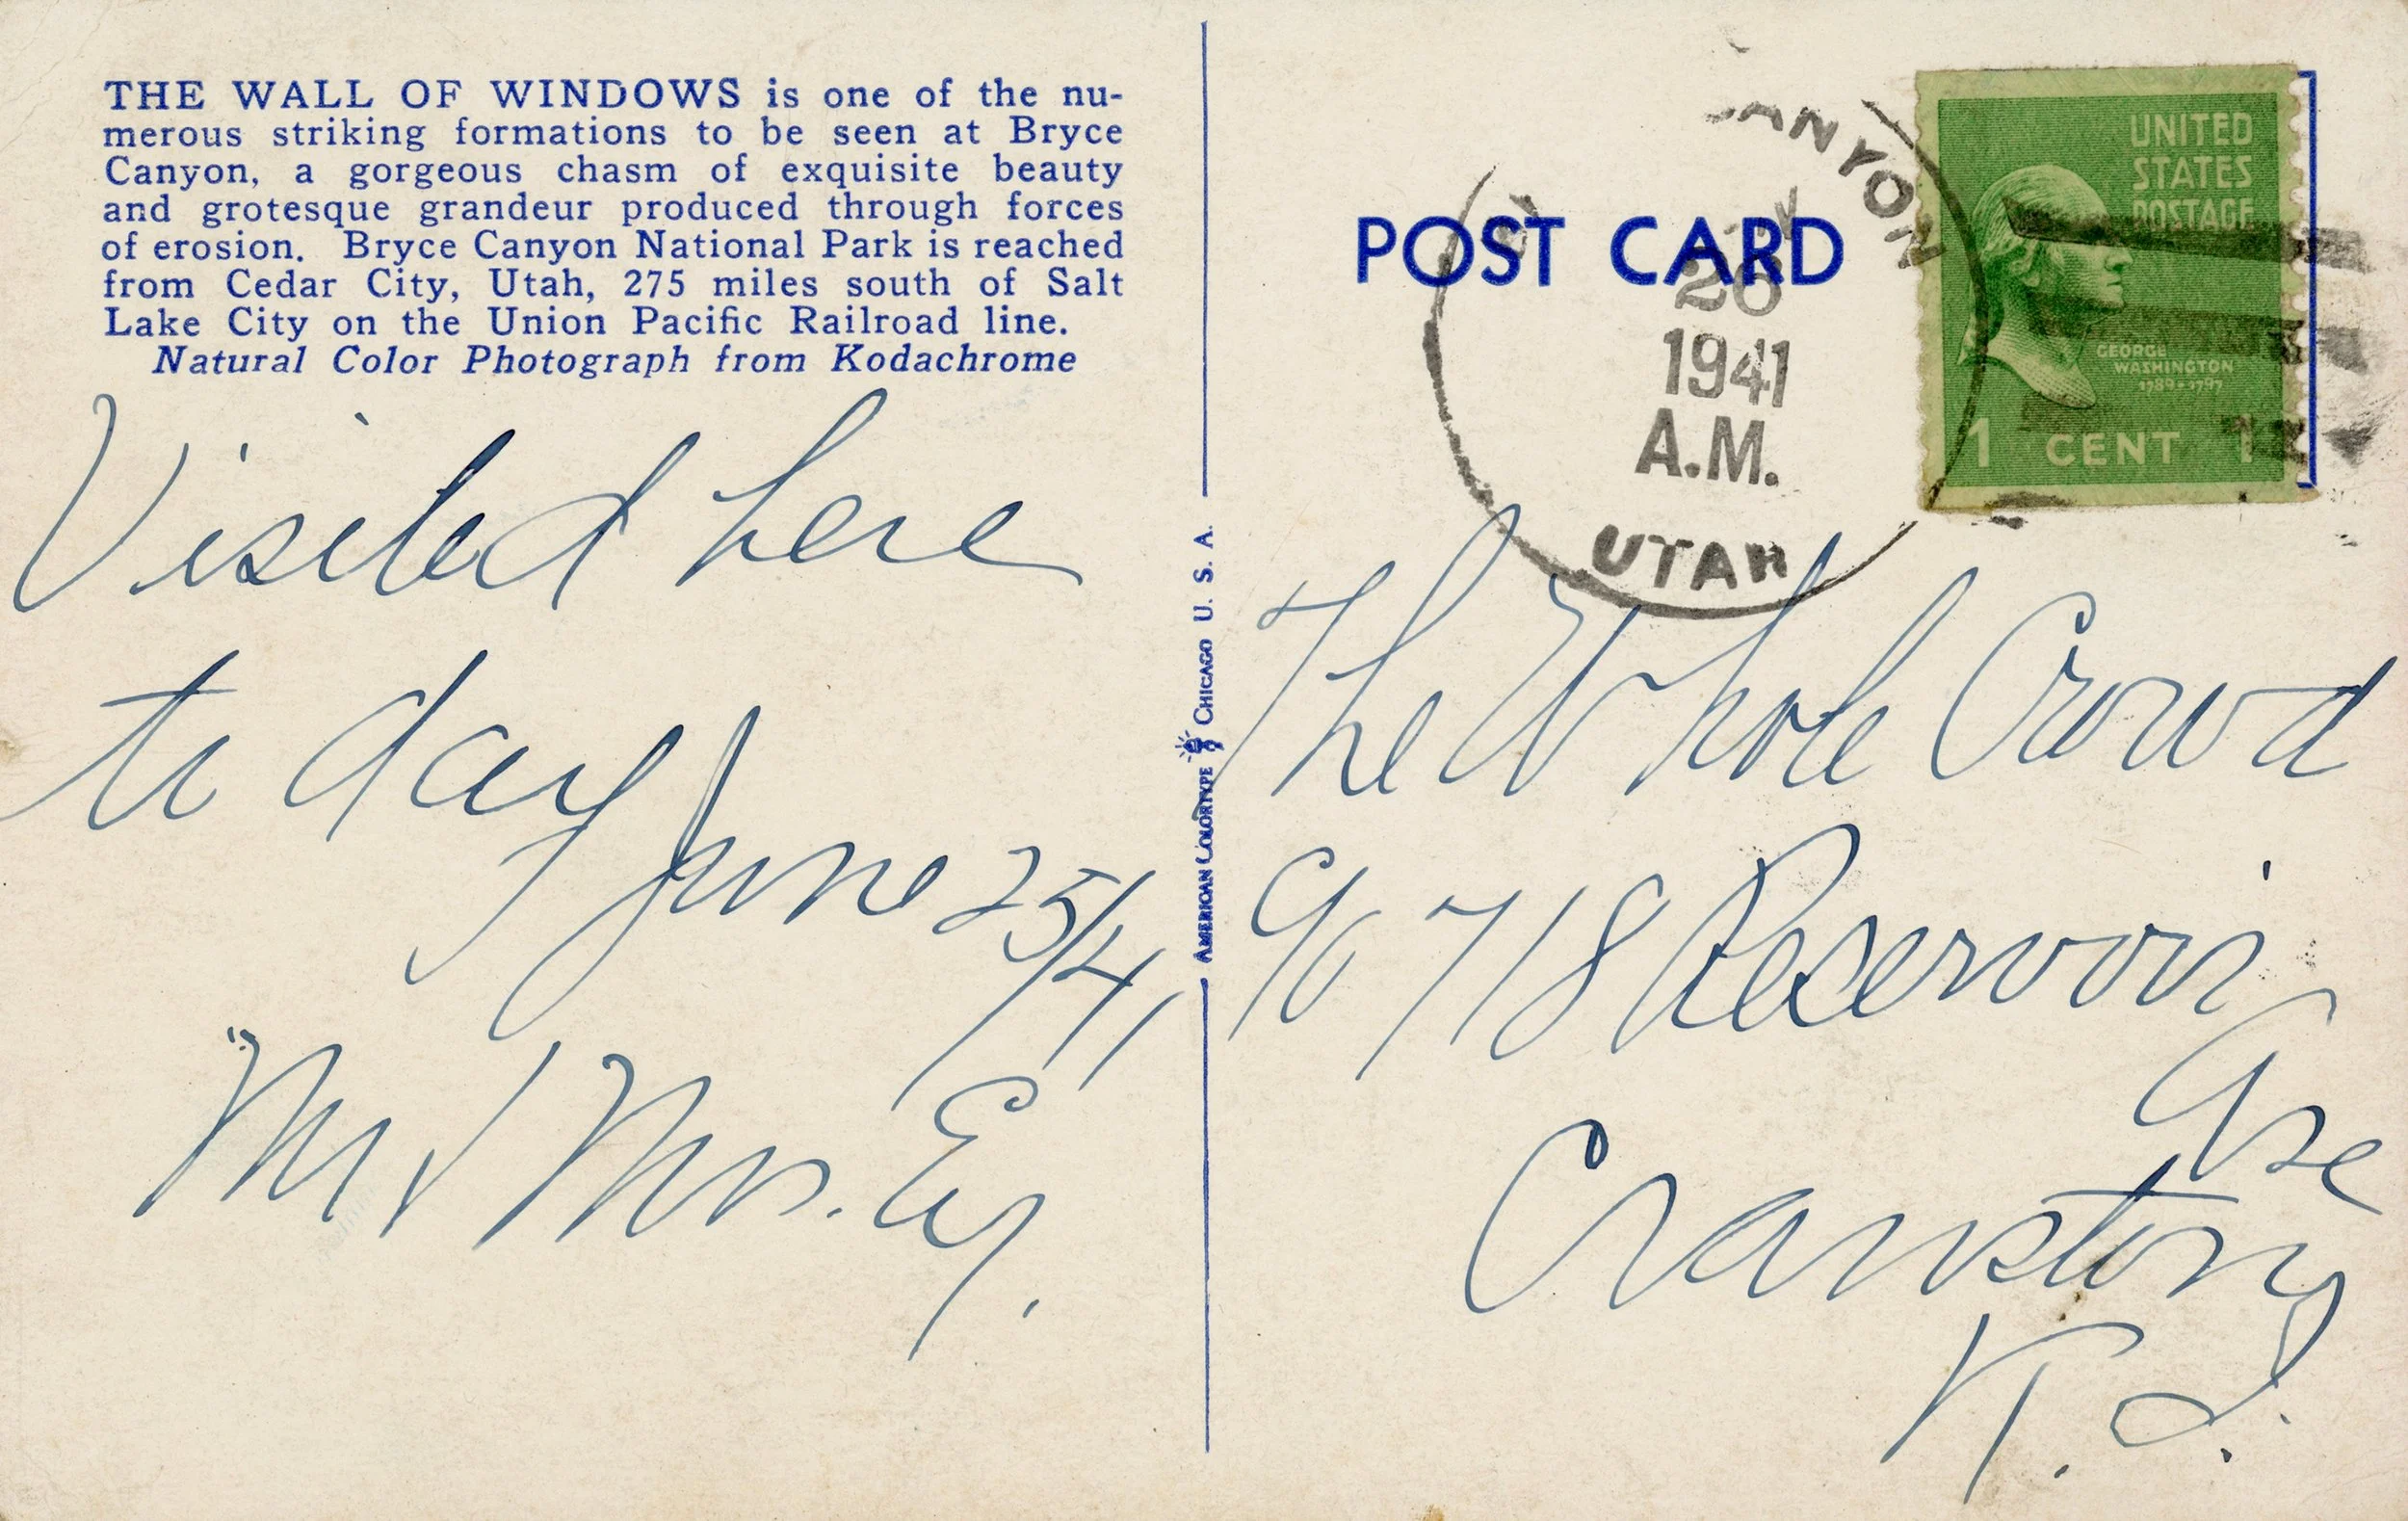 THE WALL OF WINDOWS is one of the nu-
merous striking formations to be seen at Bryce
Canyon, a gorgeous chasm of exquisite beauty
and grotesque grandeur produced through forces
of erosion. Bryce Canyon National Park is reached
from Cedar City, Utah, 275 miles south of Salt
Lake City on the Union Pacific Railroad line.
Natural Color Photograph from Kodachrome
Visited here
to day
June 25/41
Mr & Mrs. Ey.
AMERICAN COLORTYPE CHICAGO U. S. A.
POST CARD
ANYON
26
1941
A.M.
UTAH
UNITED
STATES
POSTAGE
GEORGE
WASHINGTON
1789-1797
1 CENT 1
The Whole Crowd
c/o 718 Reservoir
Ave
Cranston,
R.I.